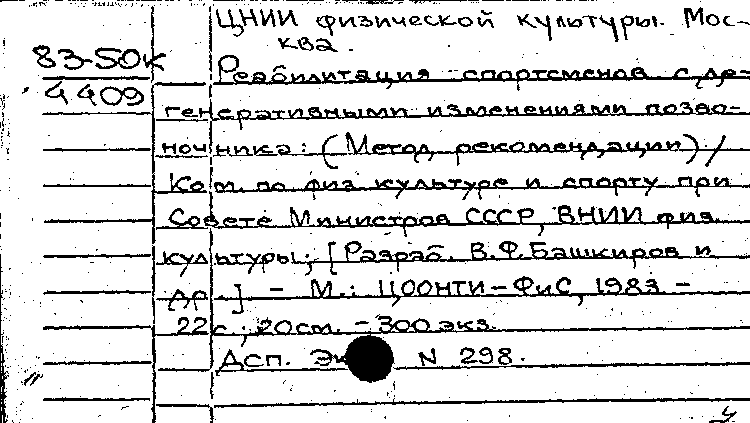 ЦНИИ физической культуры. Мос-
ква.
83-50к
4409
Реабилитация спортсменов с де-
генеративными изменениями позво-
ночника: (Метод. рекомендации) /
Ком. по физ культуре и спорту при
Совете Министров СССР, ВНИИ физ.
культуры; [Разраб. В.Ф. Башкиров и
др.] - М.: ЦООНТИ-ФиС, 1983 -
22 с.; 20 см. - 300 экз.
ДСП. N 298.